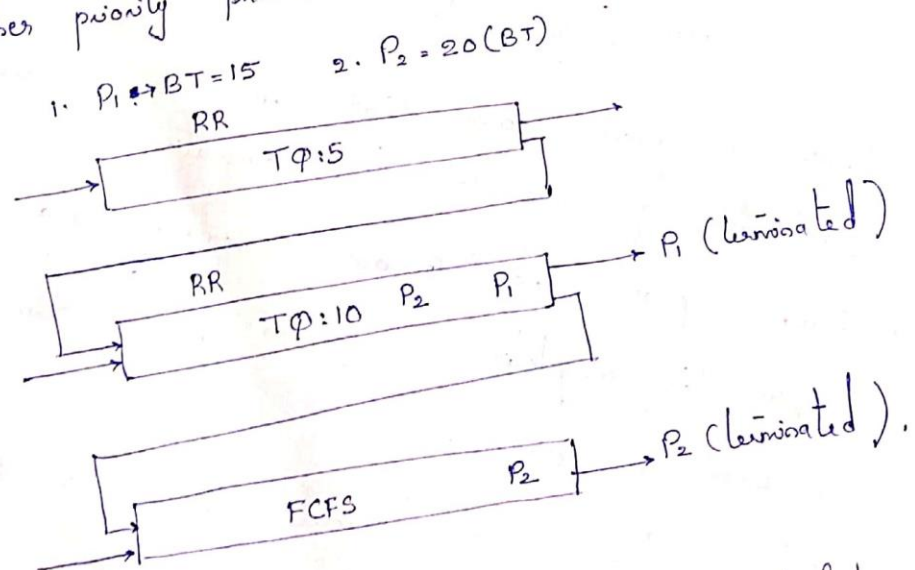 priority
1. P₁ → BT = 15 2. P₂ = 20 (BT)
RR
TQ:5
RR
TQ:10 P₂ P₁
P₁ (terminated)
FCFS P₂
P₂ (terminated).